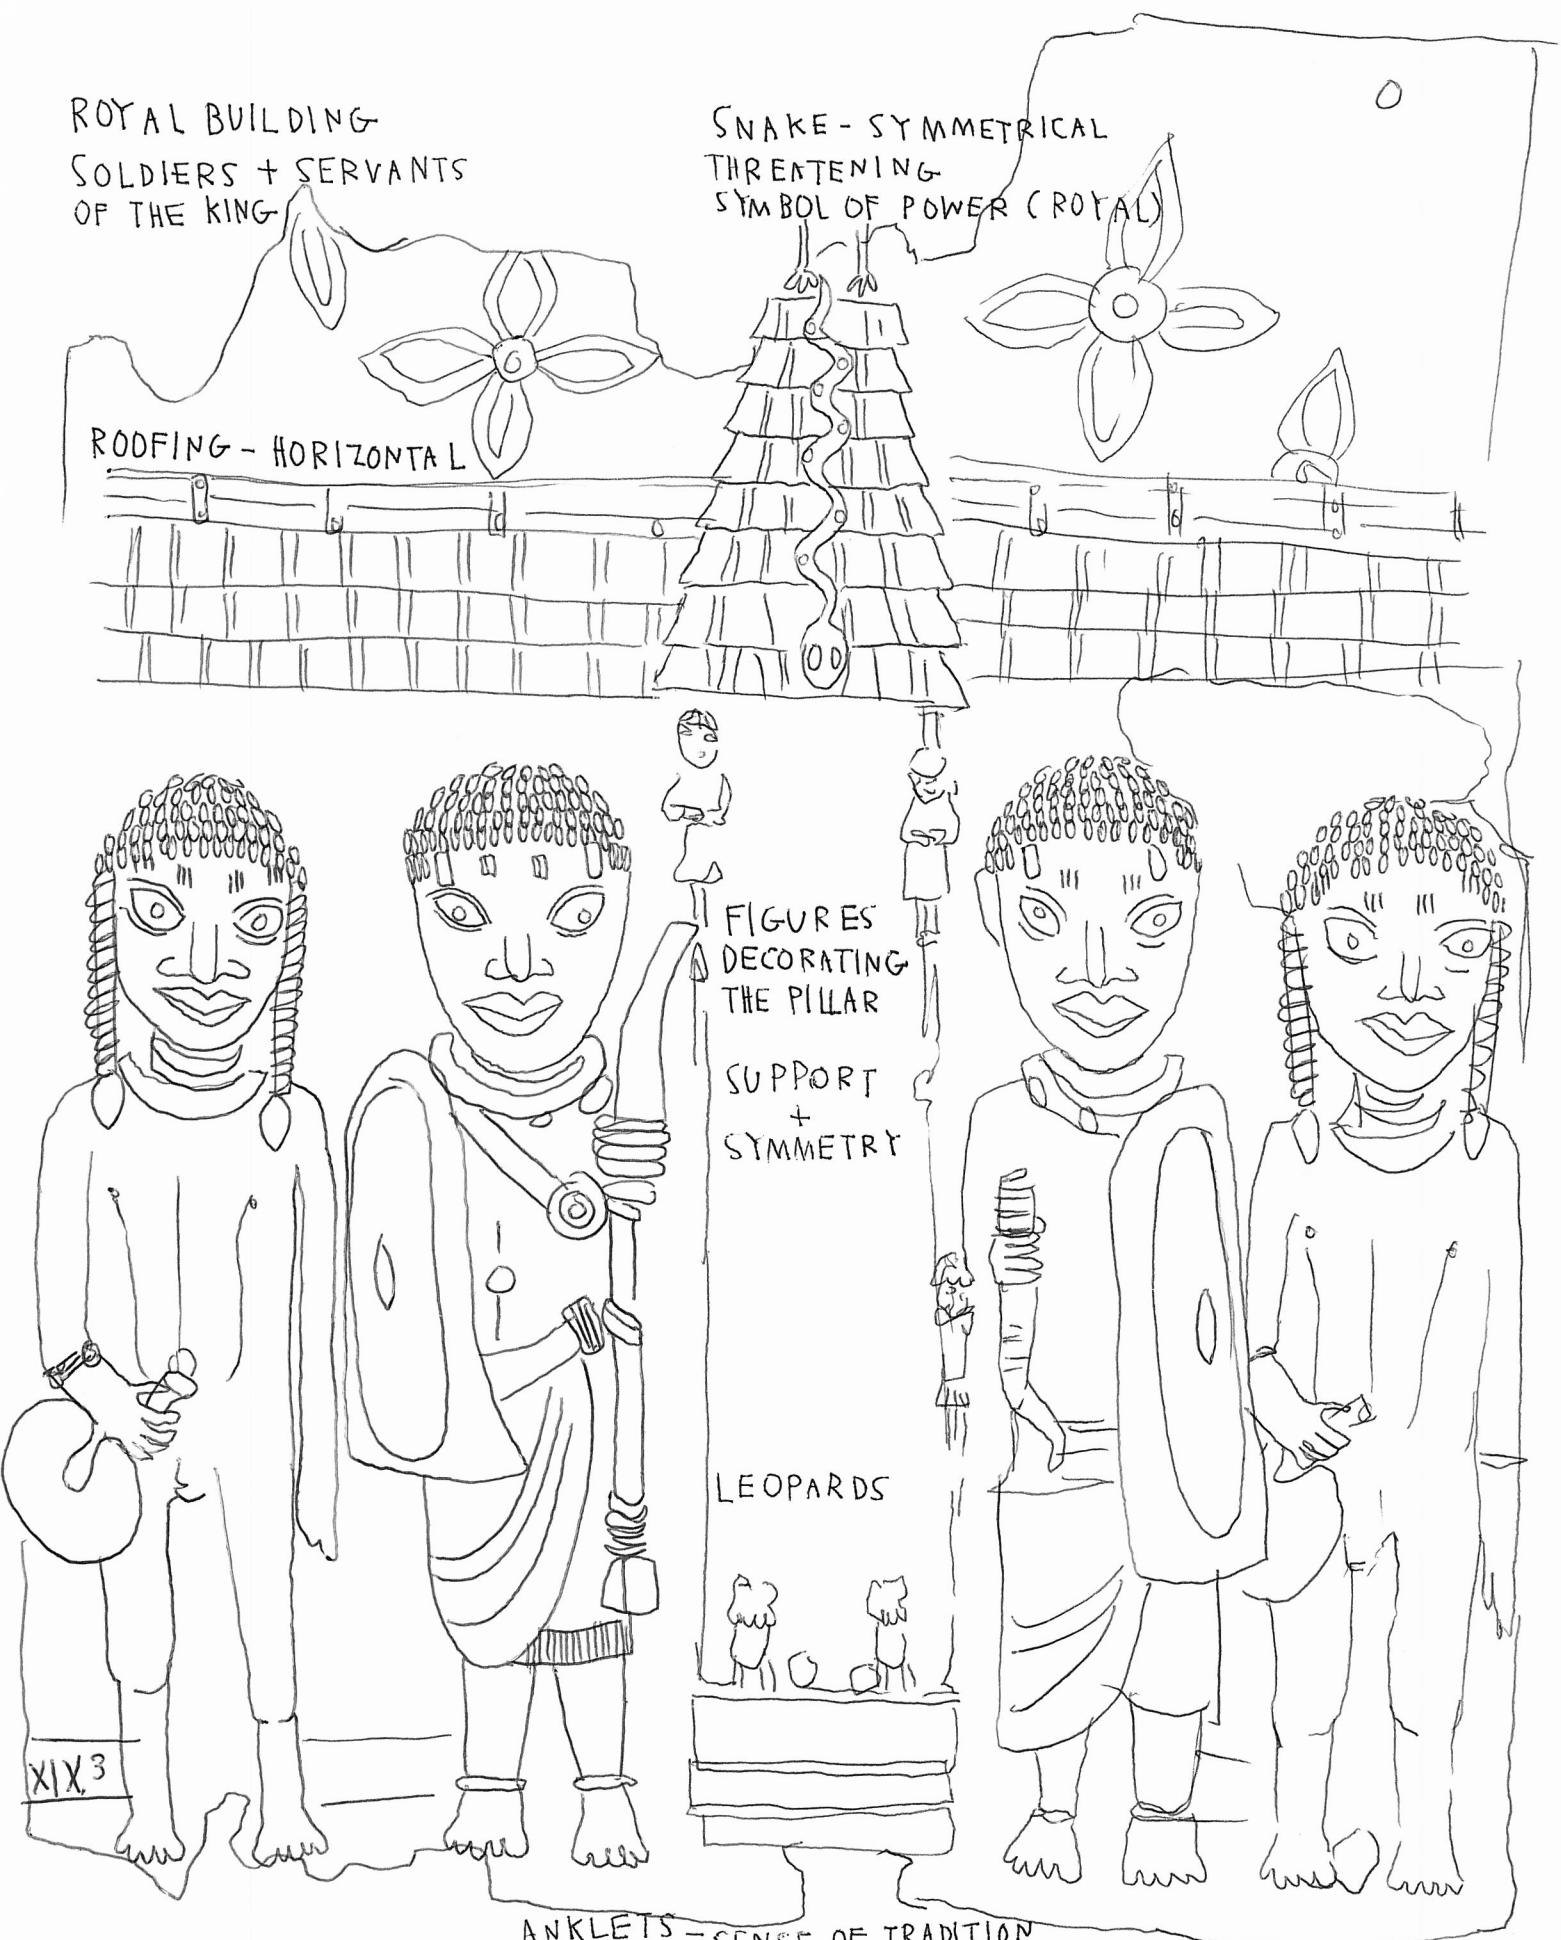 ROYAL BUILDING
SOLDIERS + SERVANTS
OF THE KING
SNAKE - SYMMETRICAL
THREATENING
SYMBOL OF POWER (ROYAL)
ROOFING - HORIZONTAL
FIGURES
DECORATING
THE PILLAR
SUPPORT
+
SYMMETRY
LEOPARDS
XIX.3
ANKLETS - SENSE OF TRADITION